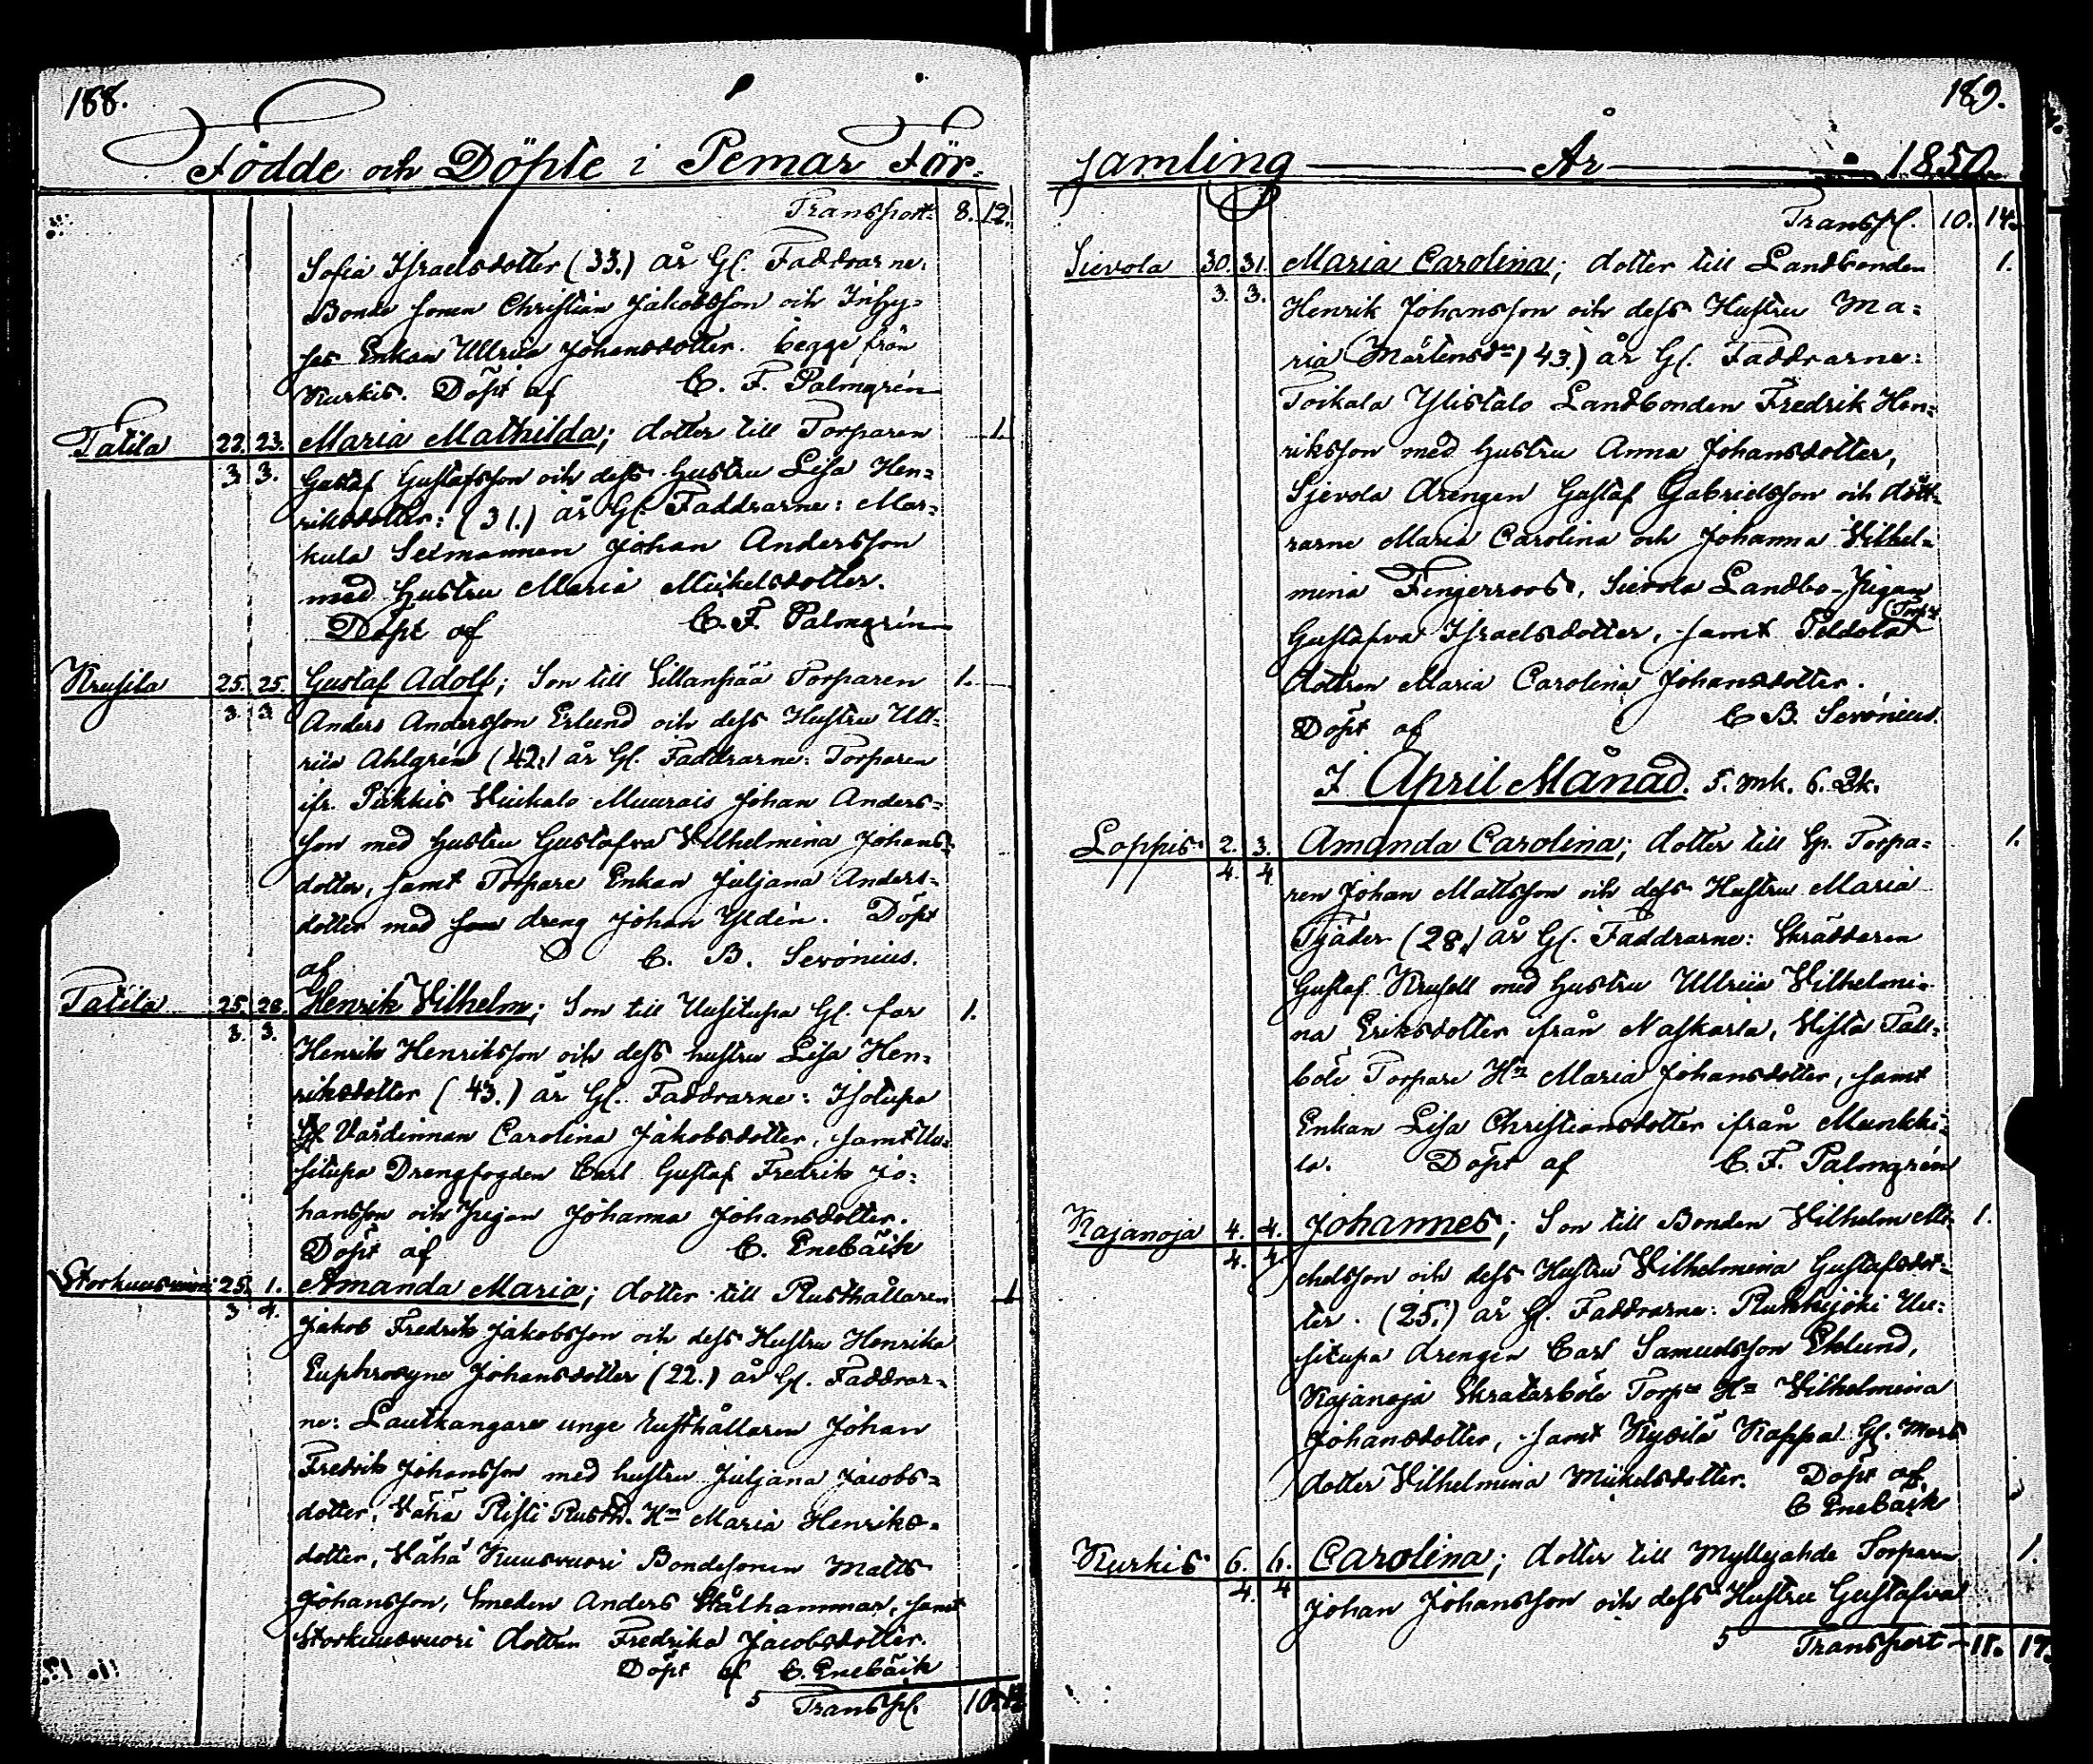 188.
Födde och Döpte i Pemar För-
Transport 8. 12.
Sofia Israelsdotter (33.) år Gl. Faddrarne:
Bonde sonen Christian Jakobsson och Inhy-
ses Enkan Ullrica Johansdotter. begge från
Kurkis. Döpt af C. F. Palmgrén
Tatila 22. 23. Maria Mathilda; dotter till Torparen 1.
3 3. Gustaf Gustafsson och dess hustru Lisa Hen-
riksdotter: (31.) år Gl. Faddrarne: Mar-
kula Sexmannen Johan Andersson
med hustru Maria Mickelsdotter.
Döpt af C. F. Palmgrén
Krusila 25. 25. Gustaf Adolf; Son till Sillanpää Torparen 1.
3. 3 Anders Andersson Erlund och dess Hustru Ull-
rica Ahlgrén (42.) år Gl. Faddrarne: Torparen
ifr. Pikkis Muurais Johan Anders-
son med hustru Gustafva Wilhelmina Johans-
dotter, samt Torpare Enkan Juljana Anders-
dotter med son dreng Johan Yldén. Döpt
af C. B. Serónius.
Tatila 25. 26. Henrik Wilhelm; Son till Uusitupa Gl. far 1.
3. 3. Henrik Henriksson och dess hustru Lisa Hen-
riksdotter (43.) år Gl. Faddrarne: Isotupa
Värdinnan Carolina Jakobsdotter, samt Uu-
situpa Drengfogden Carl Gustaf Fredrik Jo-
hansson och Pigan Johanna Johansdotter.
Döpt af C. Enebäck
Storkuusvuori 25. 1. Amanda Maria; dotter till Rusthållaren 1
3 4. Jakob Fredrik Jakobsson och dess Hustru Henrika
Euphrosyne Johansdotter (22.) år Gl. Faddrar-
ne: Lautkangare unge rusthållaren Johan
Fredrik Johansson med hustru Juljana Jacobs-
dotter, Vähä Risti Rusth. Hu Maria Henriks-
dotter, Vähä Kuusvuori Bondesonen Matts
Johansson, Smeden Anders Stålhammar, samt
Storkuusvuori dottern Fredrika Jacobsdotter.
Döpt af C. Enebäck
5 Transp. 10. 14
189.
samling År 1850.
Transp. 10. 14.
Sievola 30. 31. Maria Carolina; dotter till Landbonden 1.
3. 3. Henrik Johansson och dess Hustru Ma-
ria Mårtensdr (43.) år Gl. Faddrarne:
Toikala Ylistalo Landbonden Fredrik Hen-
riksson med hustru Anna Johansdotter,
Sjevola drengen Gustaf Gabrielsson och dött-
rarne Maria Carolina och Johanna Wilhel-
mina Fingerroos, Sievola Landbo-Pigan
Gustafva Israelsdotter, samt Peldola Torp.
dottren Maria Carolina Johansdotter.
Döpt af C B. Serónius.
I April Månad. 5. mk. 6. Qk.
Loppis 2. 3. Amanda Carolina; dotter till Sp. Torpa- 1.
4. 4. ren Johan Mattsson och dess Hustru Maria
Tjäder (28.) år Gl. Faddrarne: Skräddaren
Gustaf Krusell med hustru Ullrica Wilhelmi-
na Eriksdotter från Naskarla, Vista Tall-
böle Torpare Hu Maria Johansdotter, samt
Enkan Lisa Christiansdotter ifrån Munkki-
la. Döpt af C. F. Palmgrén
Kajanoja 4. 4. Johannes; Son till Bonden Wilhelm Mi- 1.
4. 4. chelsson och dess Hustru Wilhelmina Gustafsdot-
ter. (25.) år Gl. Faddrarne: Rukkijoki Uu-
situpa drengen Carl Samuelsson Eklund,
Kajanoja Skratarböle Torp. Hu Wilhelmina
Johansdotter, samt Kysilä Kappa Gl. Mors
dotter Wilhelmina Mickelsdotter. Döpt af
C Enebäck
Kurkis 6. 6. Carolina; dotter till Myllyahde Torparen 1.
4. 4 Johan Johansson och dess Hustru Gustafva
5 Transport 11. 17.